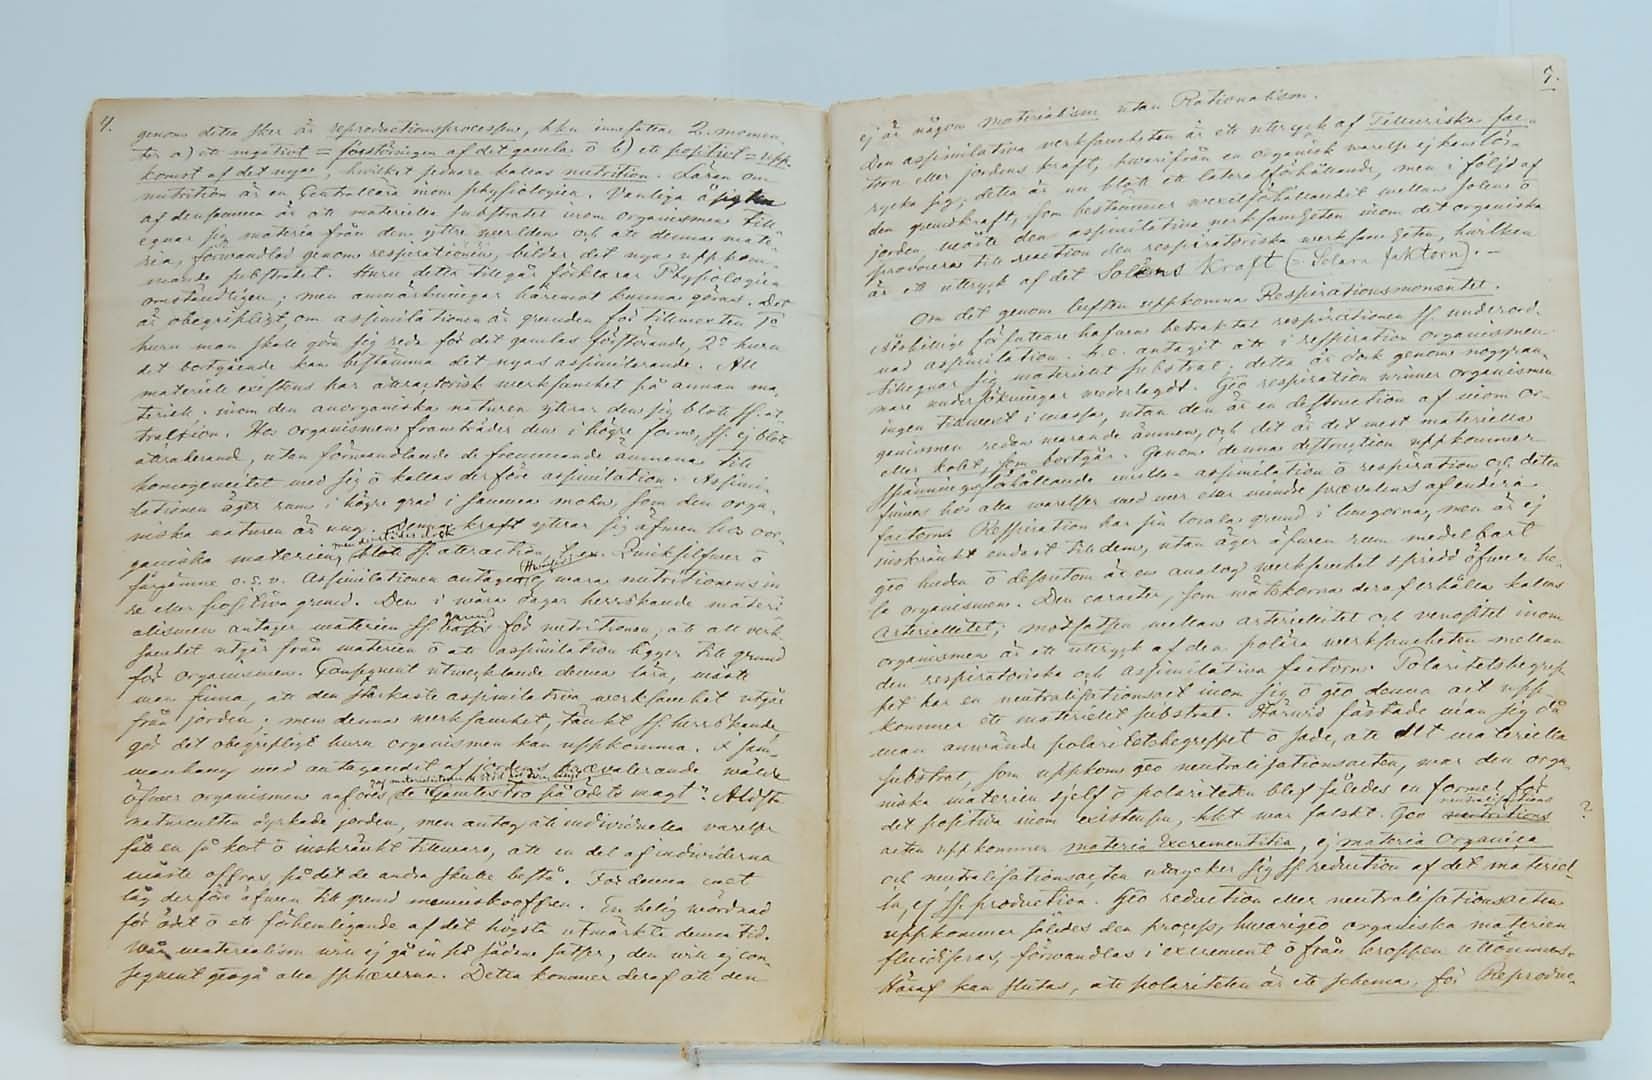 4.
genom detta sker är reproductionsprocessen, hkn innefattar 2. momen-
ter a) ett negativt = förstöringen af det gamla o b) ett positivt = upp-
komst af det nya, hvilket senare kallas nutrition. Läran om
nutrition är en Centrallära inom physiologien. Vanliga
af densamma är att materiella substratet inom organismen till-
egnar sig materia från den yttre werlden och att denna mate-
ria, förwandlad genom respirationen, bildar det nya uppkom-
mande substratet. Huru detta tillgår förklarar Physiologien
omständligen; men anmärkningar häremot kunna göras. Det
är obegripligt, om assimilationen är grunden för tillwexten 1o
huru man skall göra sig reda för det gamlas förstörande, 2o huru
det bortgående kan bestämma det nyas assimilerande. All
materiell existens har attractorisk werksamhet på annan ma-
teriell. inom den anorganiska naturen yttrar den sig blott ss. at-
traktion. Hos organismen framträder den i högre form, ss. ej blott
attraherand, utan förwandlande de fremmande ämnena till
homogeneitet med sig o kallas derför assimilation. Assimi-
lationen äger rum i högre grad i samma mohn, som den orga-
niska naturen är ung. Denna kraft yttrar sig äfwen hos oor-
ganiska materien, men dock blott ss. attraction, t. ex. Quicksilfwer o
färgämne o.s.v. Assimilationen antages (Hwarföre) ej wara nutritionens in-
re eller positiva grund. Den i wåra dagar herrskande materi-
alismen antager materien ss. basis för nutritionen; att all verk-
samhet utgår från materien o att assimilation ligger till grund
för organismen. Consequent utwecklande denna lära, måste
man finna, att den starkaste assimilativa werksamhet utgår
från jorden; men denna werksamhet, tänkt ss. herrskande,
gör det obegripligt huru organismen kan uppkomma. I sam-
manhang med antagandet af jordens prævalerande wälde
öfwer organismen anföres, de "Gamles tro på ödets magt". Äldsta
naturculten dyrkade jorden, men antog att individuella varelser
fått en så kort o inskränkt tillwaro, att en del af individerna
måste offras på det de andra skulle bestå. För denna cult
låg derföre äfwen till grund menniskooffren. En helig wördnad
för ödet o ett förhemligande af det högsta utmärkte denna tid.
Wår materialism will ej gå in på sådana satser, den will ej con-
sequent genomgå alla sphærerna. Detta kommer deraf att den
5.
ej är någon Materialism utan Rationalism.
Den assimilativa verksamheten är ett uttryck af Telluriska fac-
torn eller jordens kraft, hwarifrån en organisk warelse ej kan lös-
rycka sig; detta är nu blott ett lateralförhållande, men i följd af
den grundkraft, som bestämmer wexelförhållandet mellan solen o
jorden, måste den assimilativa verksamheten inom det organiska
provocera till reaction den respiratoriska werksamheten, hwilken
är ett uttryck af det Solens Kraft (= Solara faktorn). –
Om det genom luften uppkomna Respirationsmomentet.
författare hafwa betraktat respirationen ss. underord-
nad assimilation. h. e. antagit att i respiration organismen
tillegnar sig materielt substrat; detta är dock genom noggran-
nare undersökningar wederlagdt. Geo respiration winner organismen
ingen tillwext i massa, utan den är en destruction af inom or-
ganismen redan warande ämnen, och det är det mest materiella
eller kolet, som bortgår. Genom denna destruction uppkommer
spänningsförhållande mellan assimilation o respiration och detta
finnes hos alla warelser med mer eller mindre prævalens af endera
factorn. Respiration har sin locala grund i lungorna, men är ej
inskränkt endast till dem, utan äger äfwen rum medelbart
geo huden o dessutom är en analog werksamhet spridd öfwer he-
la organismen. Den caracter, som wätskorna deraf erhålla kallas
Arteriellitet; motsatsen mellan arteriellitet och venositet inom
organismen är ett uttryck af den polära werksamheten mellan
den respiratoriska och assimilativa factorn. Polaritetsbegrep-
pet har en neutralisationsact inom sig o geo denna act upp-
kommer ett materielt substrat. Härwid fästade man sig då
man använde polaritetsbegreppet o sade, att det materiella
substrat, som uppkom geo neutralisationsacten, war den orga-
niska materien sjelf o polariteten blef således en formel för
det positiva inom existensen, hkt war falskt. Geo neutralisations ?
acten uppkommer materia Excrementitia, ej materia organica
och neutralisationsacten uttrycker sig ss. reduction af det materiel-
la, ej ss. production. Geo reduction eller neutralisationsacten
uppkommer således den process, hwarigeo organiska materien
fluidiseras, förwandlas i excrement o från kroppen uttömmes.
Häraf kan slutas, att polariteten är ett schema för Reproduc-